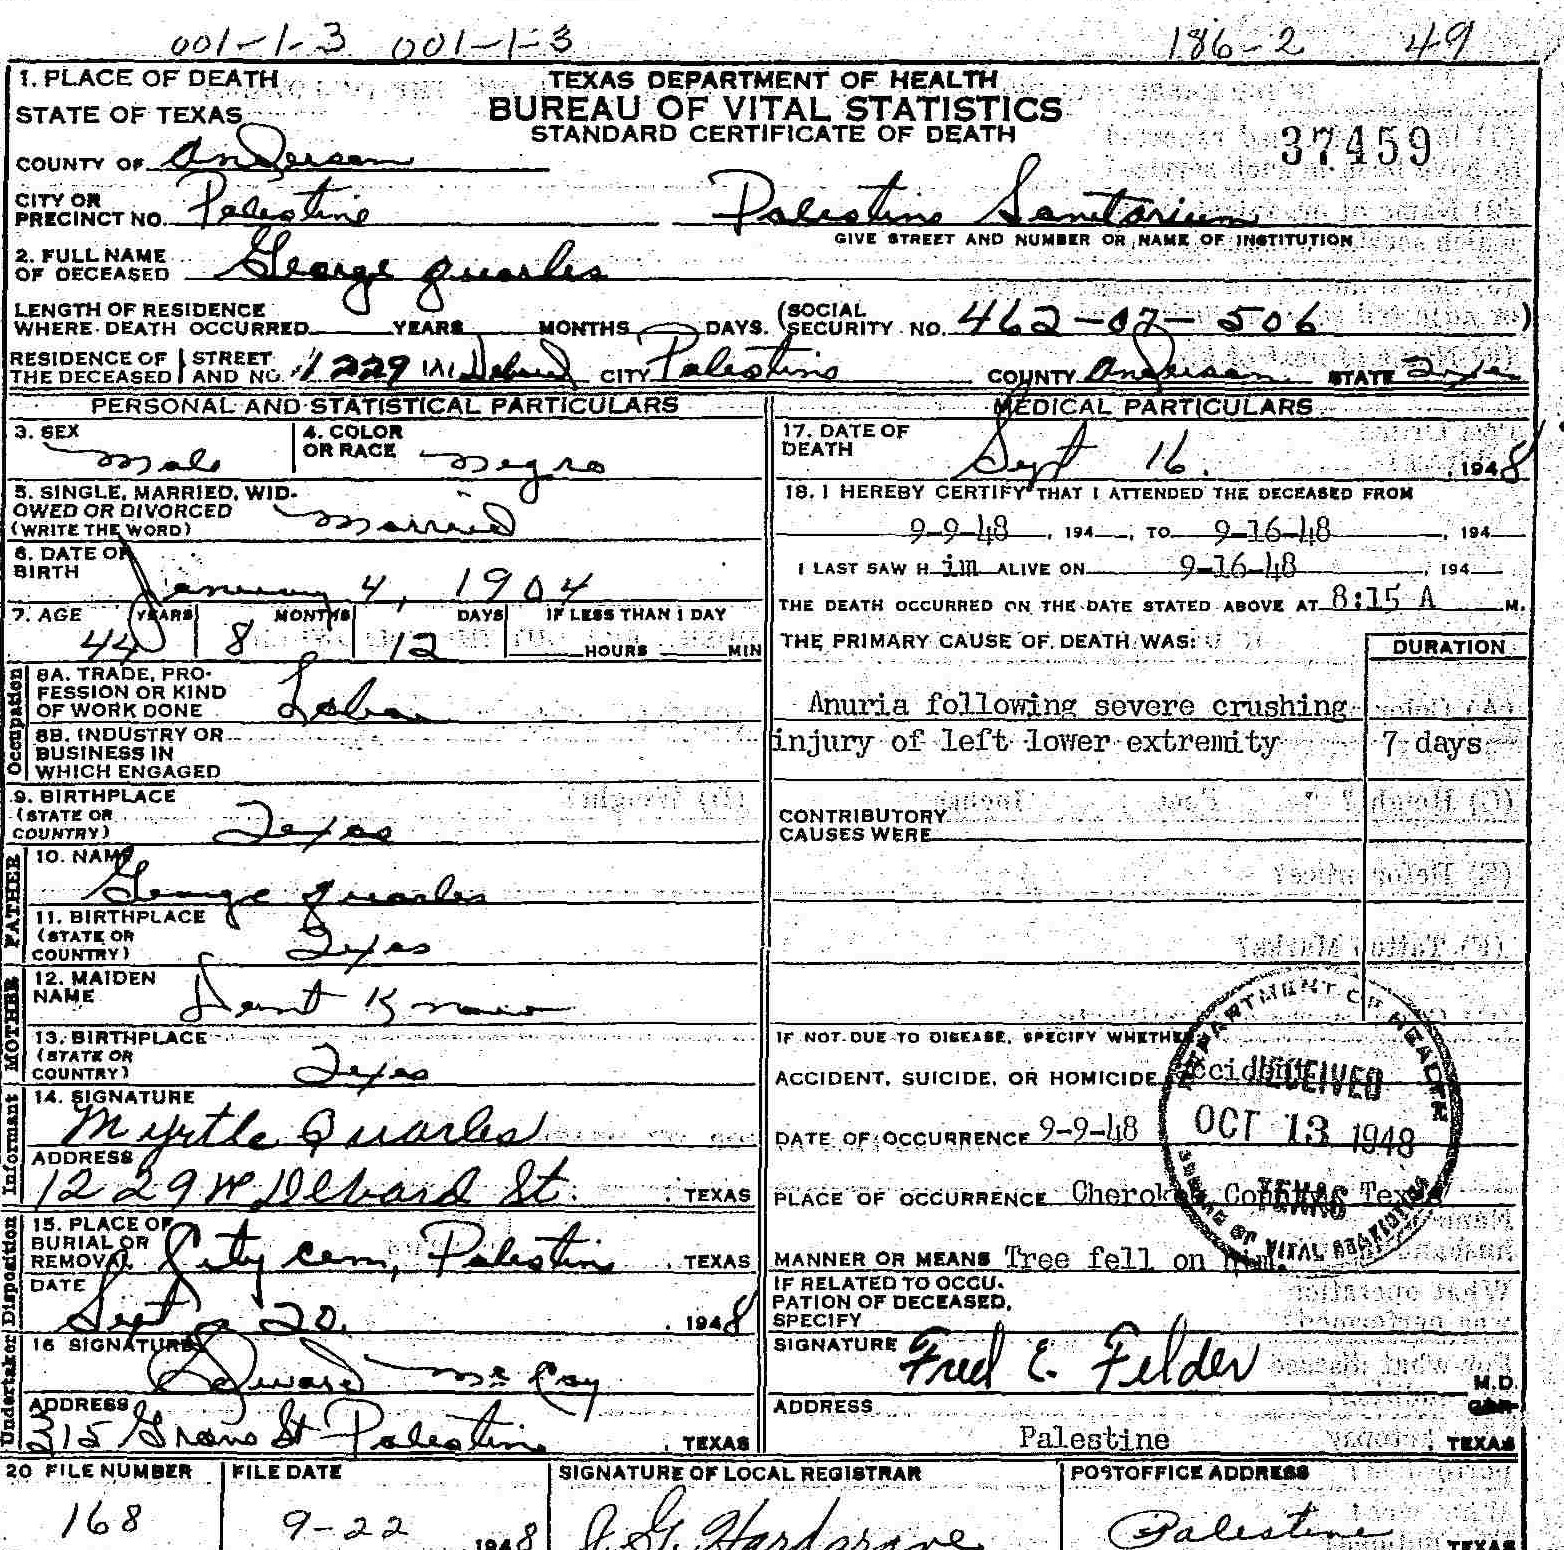 001-1-3 001-1-3 186-2 49
1. PLACE OF DEATH
STATE OF TEXAS
TEXAS DEPARTMENT OF HEALTH
BUREAU OF VITAL STATISTICS
STANDARD CERTIFICATE OF DEATH
37459
COUNTY OF Anderson
CITY OR PRECINCT NO. Palestine Palestine Sanitarium
GIVE STREET AND NUMBER OR NAME OF INSTITUTION
2. FULL NAME OF DECEASED George Quarles
LENGTH OF RESIDENCE WHERE DEATH OCCURRED YEARS MONTHS DAYS. (SOCIAL SECURITY NO. 462-07-506)
RESIDENCE OF THE DECEASED STREET AND NO. 1229 W. Debard CITY Palestine COUNTY Anderson STATE Texas
PERSONAL AND STATISTICAL PARTICULARS
3. SEX Male
4. COLOR OR RACE Negro
5. SINGLE, MARRIED, WIDOWED OR DIVORCED (WRITE THE WORD) Married
6. DATE OF BIRTH January 4, 1904
7. AGE 44 YEARS 8 MONTHS 12 DAYS IF LESS THAN 1 DAY HOURS MIN
Occupation
8A. TRADE, PROFESSION OR KIND OF WORK DONE Labor
8B. INDUSTRY OR BUSINESS IN WHICH ENGAGED
9. BIRTHPLACE (STATE OR COUNTRY) Texas
FATHER
10. NAME George Quarles
11. BIRTHPLACE (STATE OR COUNTRY) Texas
MOTHER
12. MAIDEN NAME Dont Know
13. BIRTHPLACE (STATE OR COUNTRY) Texas
Informant
14. SIGNATURE Myrtle Quarles
ADDRESS 1229 W Debard St. TEXAS
Disposition
15. PLACE OF BURIAL OR REMOVAL City cem, Palestine TEXAS
DATE Sept 20. 1948
Undertaker
16 SIGNATURE Edward McCoy
ADDRESS 315 Grans St Palestine TEXAS
MEDICAL PARTICULARS
17. DATE OF DEATH Sept 16. 1948
18. I HEREBY CERTIFY THAT I ATTENDED THE DECEASED FROM
9-9-48, 194 , TO 9-16-48, 194
I LAST SAW H im ALIVE ON 9-16-48, 194
THE DEATH OCCURRED ON THE DATE STATED ABOVE AT 8:15 A M.
THE PRIMARY CAUSE OF DEATH WAS: DURATION
Anuria following severe crushing
injury of left lower extremity 7 days
CONTRIBUTORY CAUSES WERE
IF NOT DUE TO DISEASE, SPECIFY WHETHER
ACCIDENT, SUICIDE, OR HOMICIDE Accident
DATE OF OCCURRENCE 9-9-48
PLACE OF OCCURRENCE Cherokee County, Texas
MANNER OR MEANS Tree fell on him.
IF RELATED TO OCCUPATION OF DECEASED, SPECIFY
SIGNATURE Fred E. Felder M.D.
ADDRESS Palestine TEXAS
DEPARTMENT OF HEALTH
RECEIVED
OCT 13 1948
TEXAS
BUREAU OF VITAL STATISTICS
20 FILE NUMBER 168
FILE DATE 9-22 1948
SIGNATURE OF LOCAL REGISTRAR Hardgrave
POSTOFFICE ADDRESS Palestine TEXAS